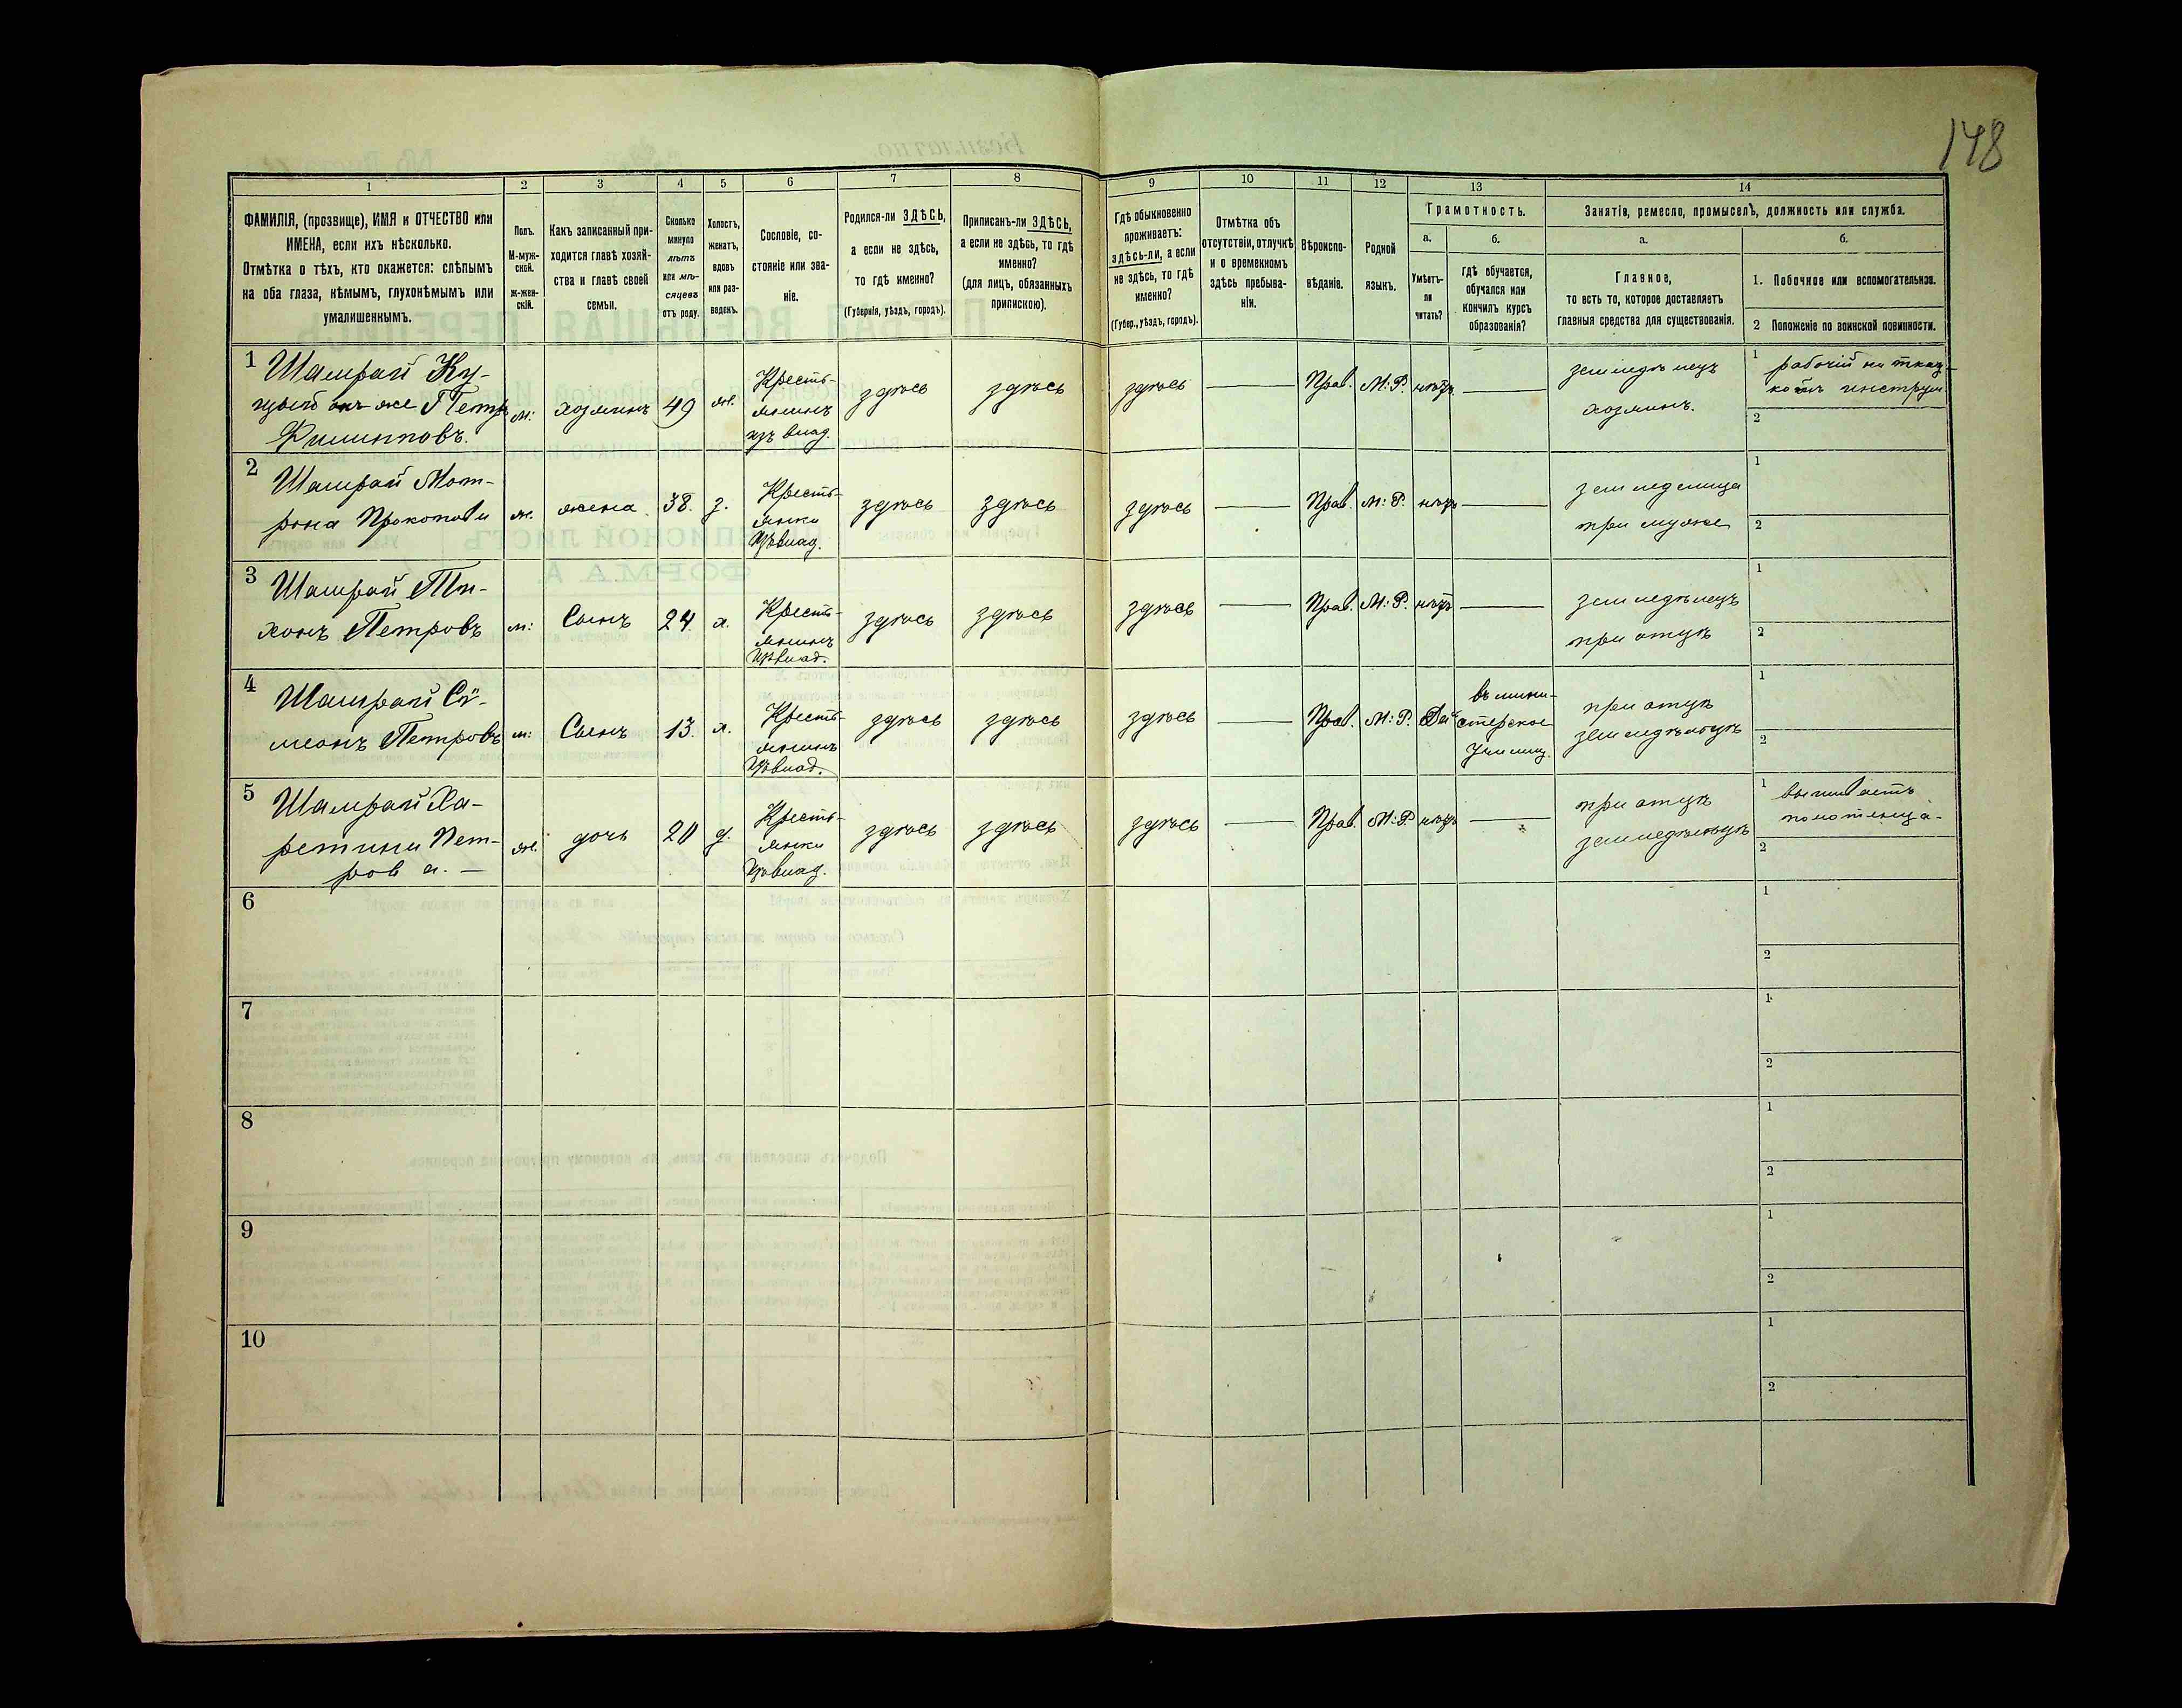 148
1 2 3 4 5 6 7 8 9 10 11 12 13 14
ФАМИЛІЯ, (прозвище), ИМЯ и ОТЧЕСТВО или
ИМЕНА, если ихъ нѣсколько.
Отмѣтка о тѣхъ, кто окажется: слѣпымъ
на оба глаза, нѣмымъ, глухонѣмымъ или
умалишеннымъ.
Полъ.
М-муж-
ской.
ж-жен-
скій.
Какъ записанный при-
ходится главѣ хозяй-
ства и главѣ своей
семьи.
Сколько
минуло
лѣтъ
или мѣ-
сяцевъ
отъ роду.
Холостъ,
женатъ,
вдовъ
или раз-
веденъ.
Сословіе, со-
стояніе или зва-
ніе.
Родился-ли ЗДѢСЬ,
а если не здѣсь,
то гдѣ именно?
(Губернія, уѣздъ, городъ).
Приписанъ-ли ЗДѢСЬ,
а если не здѣсь, то гдѣ
именно?
(для лицъ, обязанныхъ
припискою).
Гдѣ обыкновенно
проживаетъ:
здѣсь-ли, а если
не здѣсь, то гдѣ
именно?
(Губер., уѣздъ, городъ).
Отмѣтка объ
отсутствіи, отлучкѣ
и о временномъ
здѣсь пребыва-
ніи.
Вѣроиспо-
вѣданіе.
Родной
языкъ.
Грамотность.
а.
Умѣетъ-
ли
читать?
б.
гдѣ обучается,
обучался или
кончилъ курсъ
образованія?
Занятія, ремесло, промыселъ, должность или служба.
а.
Главное,
то есть то, которое доставляетъ
главныя средства для существованія.
б.
1. Побочное или вспомогательное.
2 Положеніе по воинской повинности.
1 Шамрай Ку-
цый онъ же Петръ
Филипповъ.
м: хозяинъ 49 ж.
Кресть-
янинъ
изъ влад.
здѣсь здѣсь здѣсь Прав. М:Р. нѣтъ
земледѣлецъ
хозяинъ.
1 рабочій на ткац-
комъ инструм
2
2 Шамрай Мот-
рона Прокопова
ж. жена 38. з.
Кресть-
янка
Изъ влад.
здѣсь здѣсь здѣсь Прав. М:Р. нѣтъ
земледѣлица
при мужѣ
1
2
3 Шамрай Ти-
хонъ Петровъ
м: Сынъ 24 х.
Кресть-
янинъ
Изъ влад.
здѣсь здѣсь здѣсь Прав. М:Р. нѣтъ
земледѣлецъ
при отцѣ
1
2
4 Шамрай Сѵ-
меонъ Петровъ
м: Сынъ 13. х.
Кресть-
янинъ
Изъ влад.
здѣсь здѣсь здѣсь Прав. М:Р. Да
въ мини-
стерское
училищ.
при отцѣ
земледѣльцѣ
1
2
5 Шамрай Ха-
ретина Пет-
рова. —
ж. дочь 20 д.
Кресть-
янка
Изъ влад.
здѣсь здѣсь здѣсь Прав. М:Р. нѣтъ
при отцѣ
земледѣльцѣ
1 вышиваетъ
полотенца.
2
6
1
2
7
1
2
8
1
2
9
1
2
10
1
2